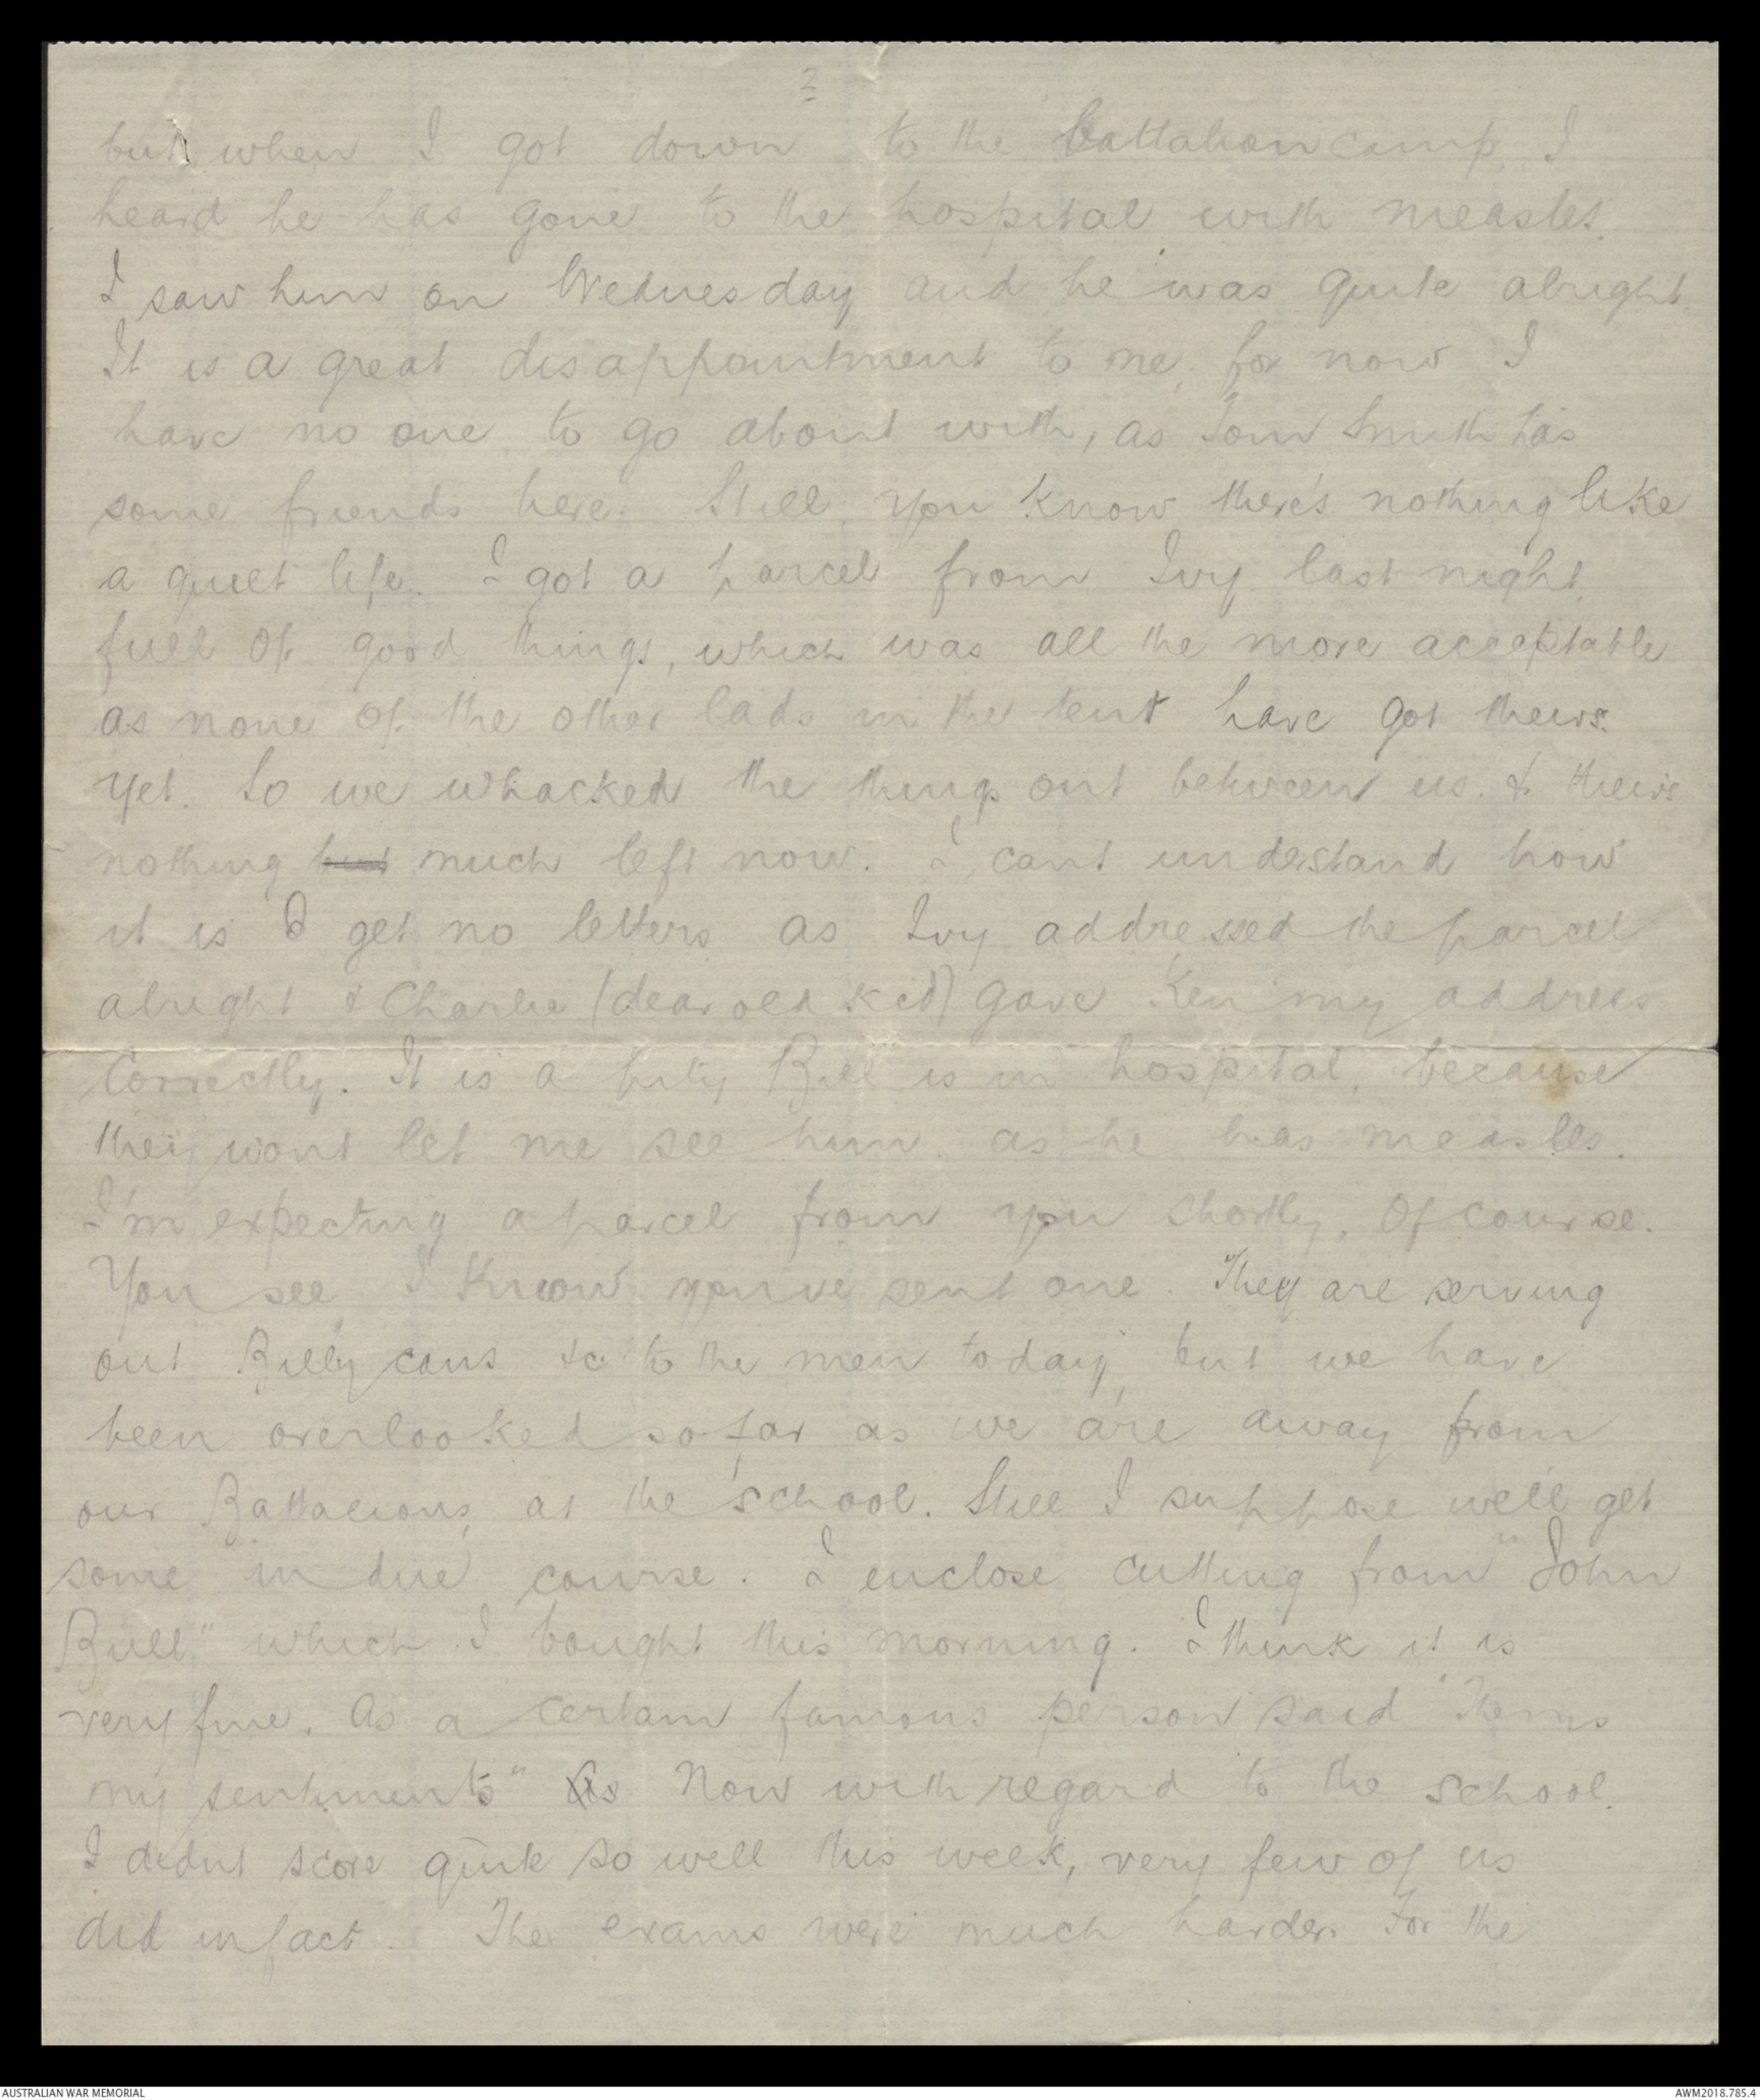 2
but when I got down to the Battalion camp, I
heard he has gone to the hospital with measles.
I saw him on Wednesday and he was quite alright.
It is a great disappointment to me, for now I
have no one to go about with, as Tom Smith has
some friends here. Still you know there's nothing like
a quiet life. I got a parcel from Ivy last night,
full of good things, which was all the more acceptable
as none of the other lads in the tent have got theirs.
yet. So we whacked the things out between us. & theirs
nothing but much left now. I cant understand how
it is I get no letters as Ivy addressed the parcel
alright & Charlie (dear old kid) gave Ken my address
correctly. It is a pity Bill is in hospital, because
they wont let me see him as he has measles.
I'm expecting a parcel from you shortly, of course.
You see I know you've sent one. They are serving
out Billy cans &c to the men today, but we have
been overlooked so far as we are away from
our Battalions, at the school. Still I suppose we'll get
some in due course. I enclose cutting from "John
Bull" which I bought this morning. I think it is
very fine. As a certain famous person said "Thems
my sentiments" As Now with regard to the school.
I didnt score quite so well this week, very few of us
did in fact. The exams were much harder. For the
AUSTRALIAN WAR MEMORIAL
AWM2018.785.4